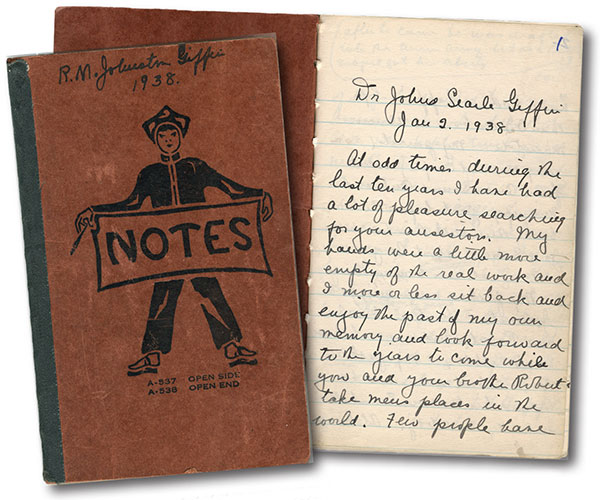 R. M. Johnston Giffin
1938.
NOTES
A-537 OPEN SIDE
A-538 OPEN END
1
Dr Johns Searle Giffin
Jan 2. 1938
At odd times during the
last ten years I have had
a lot of pleasure searching
for your ansestors. My
hands were a little more
empty of the real work and
I more or less sit back and
enjoy the past of my own
memory and look forward
to the years to come while
you and your brother Robert
take mens places in the
world. Few people have